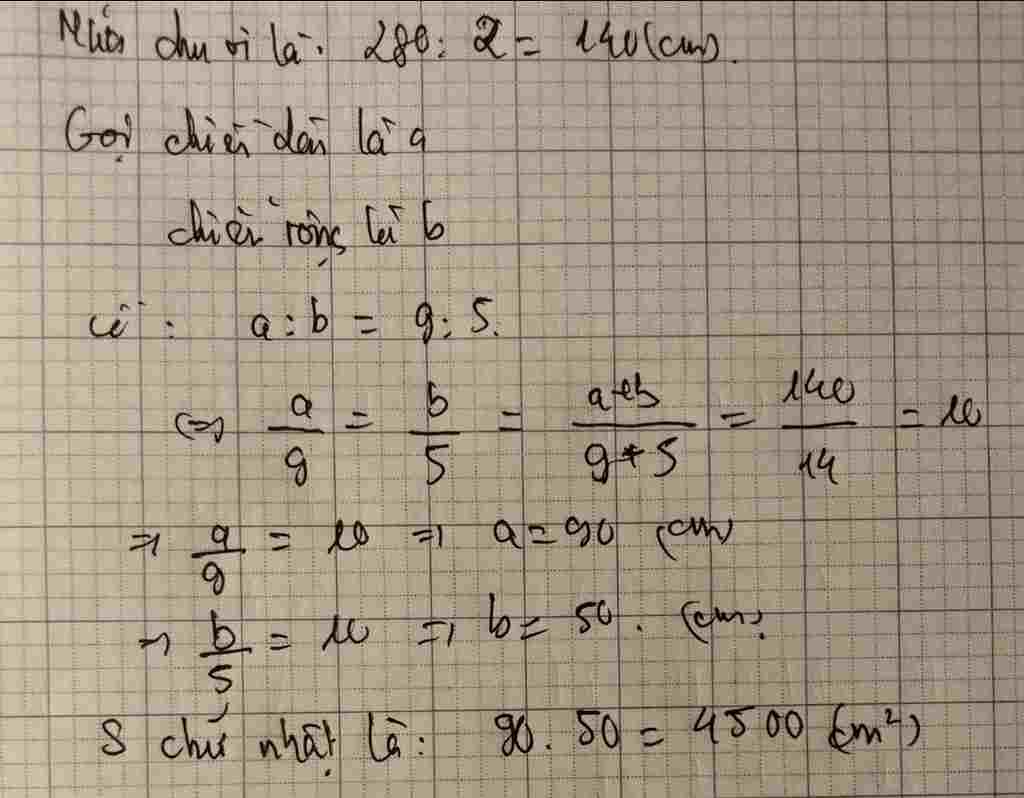 Nửa chu vi là: 280 : 2 = 140 (cm).
Gọi chiều dài là a
chiều rộng là b
có : a : b = 9 : 5.
<=> a/9 = b/5 = (a+b)/(9+5) = 140/14 = 10
=> a/9 = 10 => a = 90 (cm)
=> b/5 = 10 => b = 50 . (cm).
S chữ nhật là : 90 . 50 = 4500 (cm²)